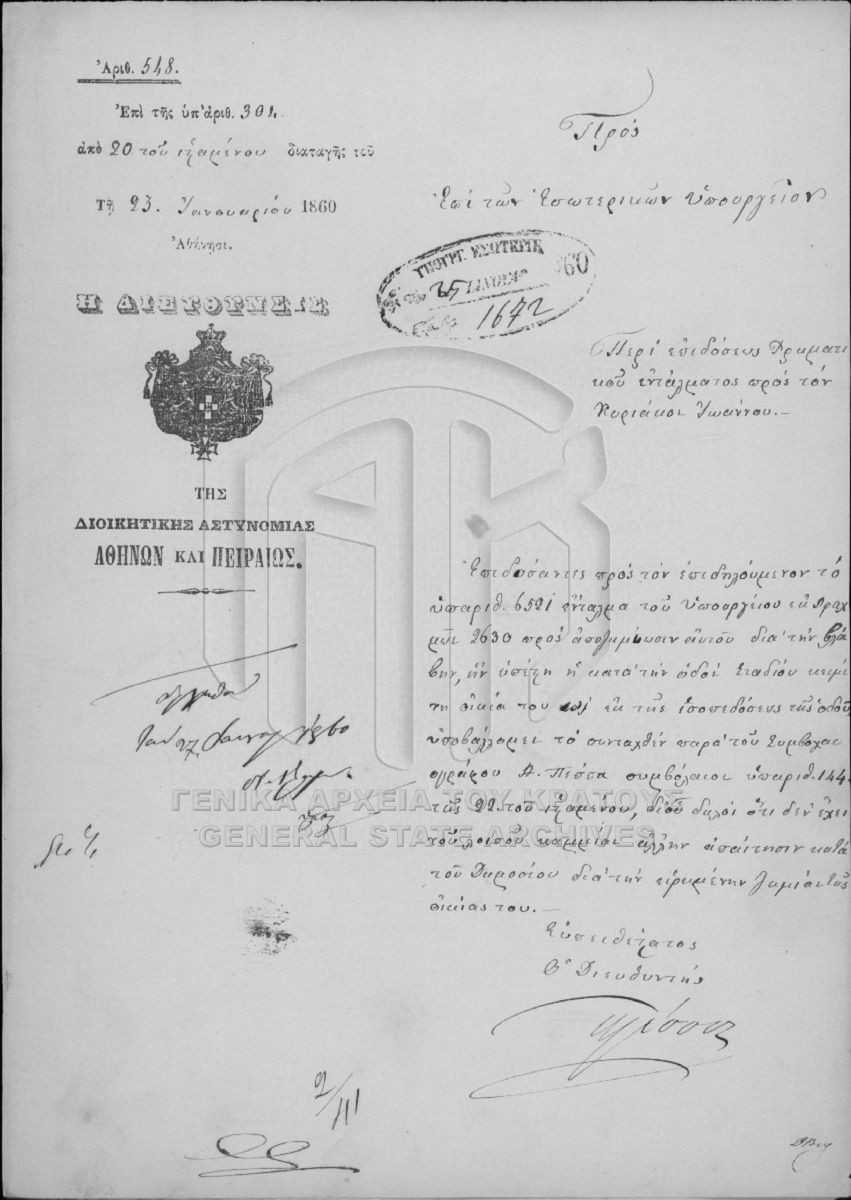 Ἀριθ. 548.
Ἐπὶ τῆς ὑπ' ἀριθ. 301.
ἀπὸ 20 τοῦ ἱσταμένου διαταγῆς τοῦ
Τῇ 23. Ἰανουαρίου 1860
Ἀθήνησι.
Η ΔΙΕΥΘΥΝΣΙΣ
ΤΗΣ
ΔΙΟΙΚΗΤΙΚΗΣ ΑΣΤΥΝΟΜΙΑΣ
ΑΘΗΝΩΝ ΚΑΙ ΠΕΙΡΑΙΩΣ.
Πρὸς
Ἐπὶ τῶν Ἐσωτερικῶν Ὑπουργεῖον
ΥΠΟΥΡΓ. ΕΣΩΤΕΡΙΚ
25 ΙΑΝΟΥΑΡ 60
1672
Περὶ ἐπιδόσεως Δραματι
κοῦ ἐντάλματος πρὸς τὸν
Κυριάκον Ἰωάννου.—
Ἐπιδόσαντες πρὸς τὸν ἐπιδηλούμενον τὸ
ὑπαριθ. 6521 ἔνταλμα τοῦ Ὑπουργείου ἐκ Δραχ
μῶν 2630 πρὸς ἀποζημίωσιν αὐτοῦ διὰ τὴν βλά
βην, ἣν ὑπέστη ἡ κατὰ τὴν ὁδὸν Σταδίου κειμέ
νη οἰκία του ἐκ τῆς ἰσοπεδόσεως τῆς ὁδοῦ
ὑποβάλλομεν τὸ συνταχθὲν παρὰ τοῦ Συμβολαι
ογράφου Α. Πέσσα συμβόλαιον ὑπαριθ. 144
τῆς 22. τοῦ ἱσταμένου, δι' οὗ δηλοῖ ὅτι δὲν ἔχει
τοῦ λοιποῦ καμμίαν ἄλλην ἀπαίτησιν κατὰ
τοῦ Δημοσίου διὰ τὴν εἰρημένην ζημίαν τῆς
οἰκίας του.—
Εὐπειθέστατος
Ὁ Διευθυντὴς
ΓΕΝΙΚΑ ΑΡΧΕΙΑ ΤΟΥ ΚΡΑΤΟΥΣ
GENERAL STATE ARCHIVES
2/III